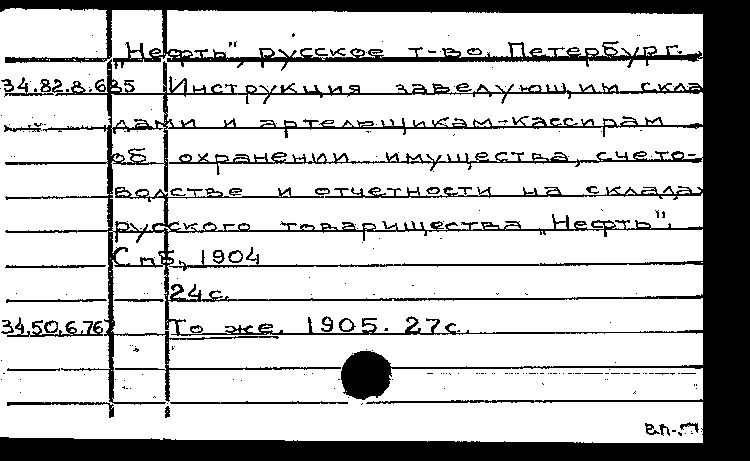 „Нефть", русское т-во. Петербург.
34.82.8.635 Инструкция заведующим скла
дами и артельщикам-кассирам
об охранении имущества, счето-
водстве и отчетности на склада
русского товарищества „Нефть".
Спб., 1904
24с.
34.50.6.767 То же. 1905. 27с.